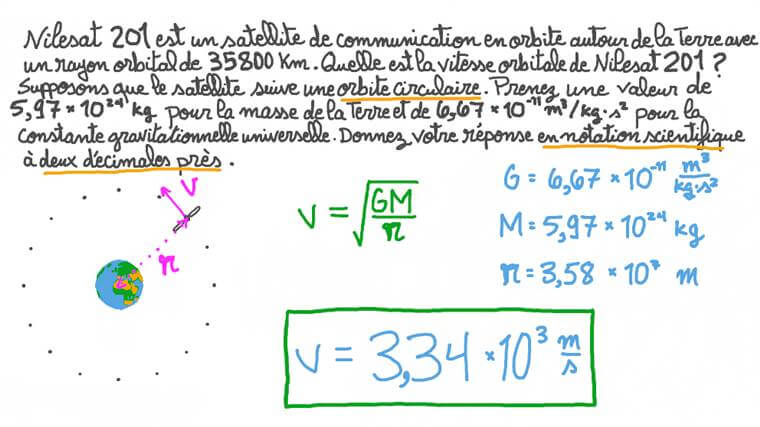 Nilesat 201 est un satellite de communication en orbite autour de la Terre avec
un rayon orbital de 35800 Km. Quelle est la vitesse orbitale de Nilesat 201 ?
Supposons que le satellite suive une orbite circulaire. Prenez une valeur de
5,97 × 10²⁴ kg pour la masse de la Terre et de 6,67 × 10⁻¹¹ m³/kg·s² pour la
constante gravitationnelle universelle. Donnez votre réponse en notation scientifique
à deux décimales près.
v
r
v = √(GM/r)
G = 6,67 × 10⁻¹¹ m³/kg·s²
M = 5,97 × 10²⁴ kg
r = 3,58 × 10⁷ m
v = 3,34 × 10³ m/s